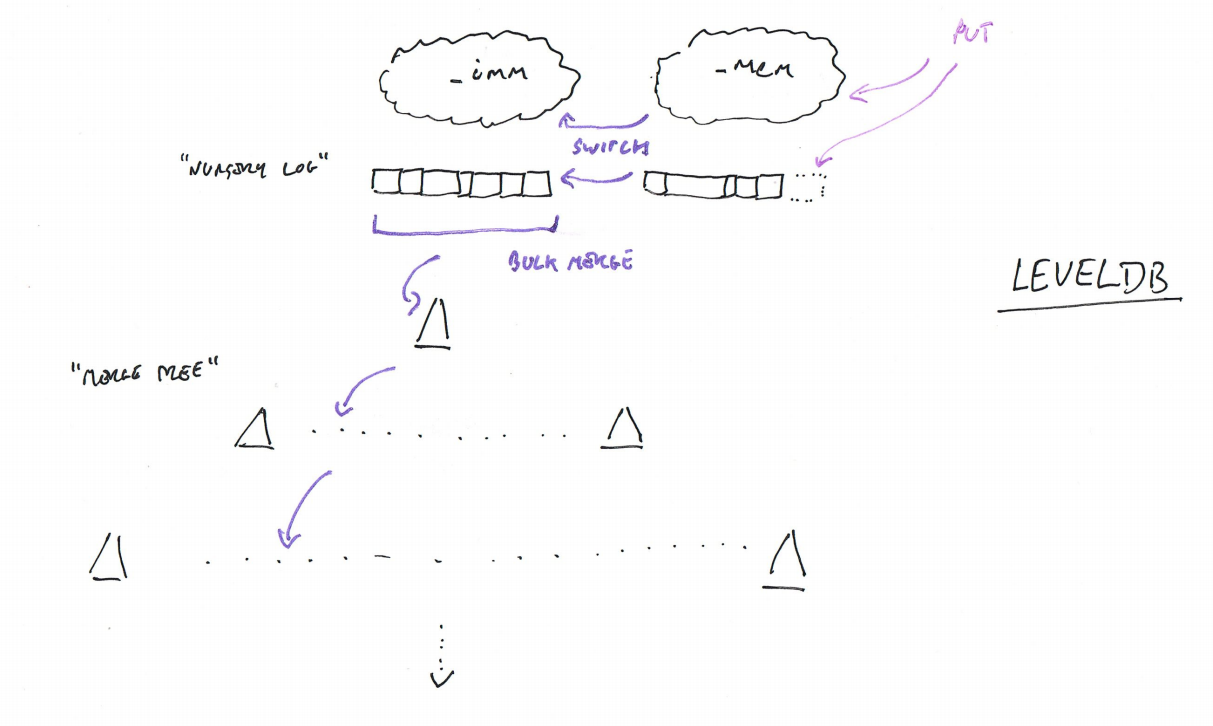 PUT
_imm
_mem
SWITCH
"NURSERY LOG"
BULK MERGE
LEVELDB
"MERGE TREE"